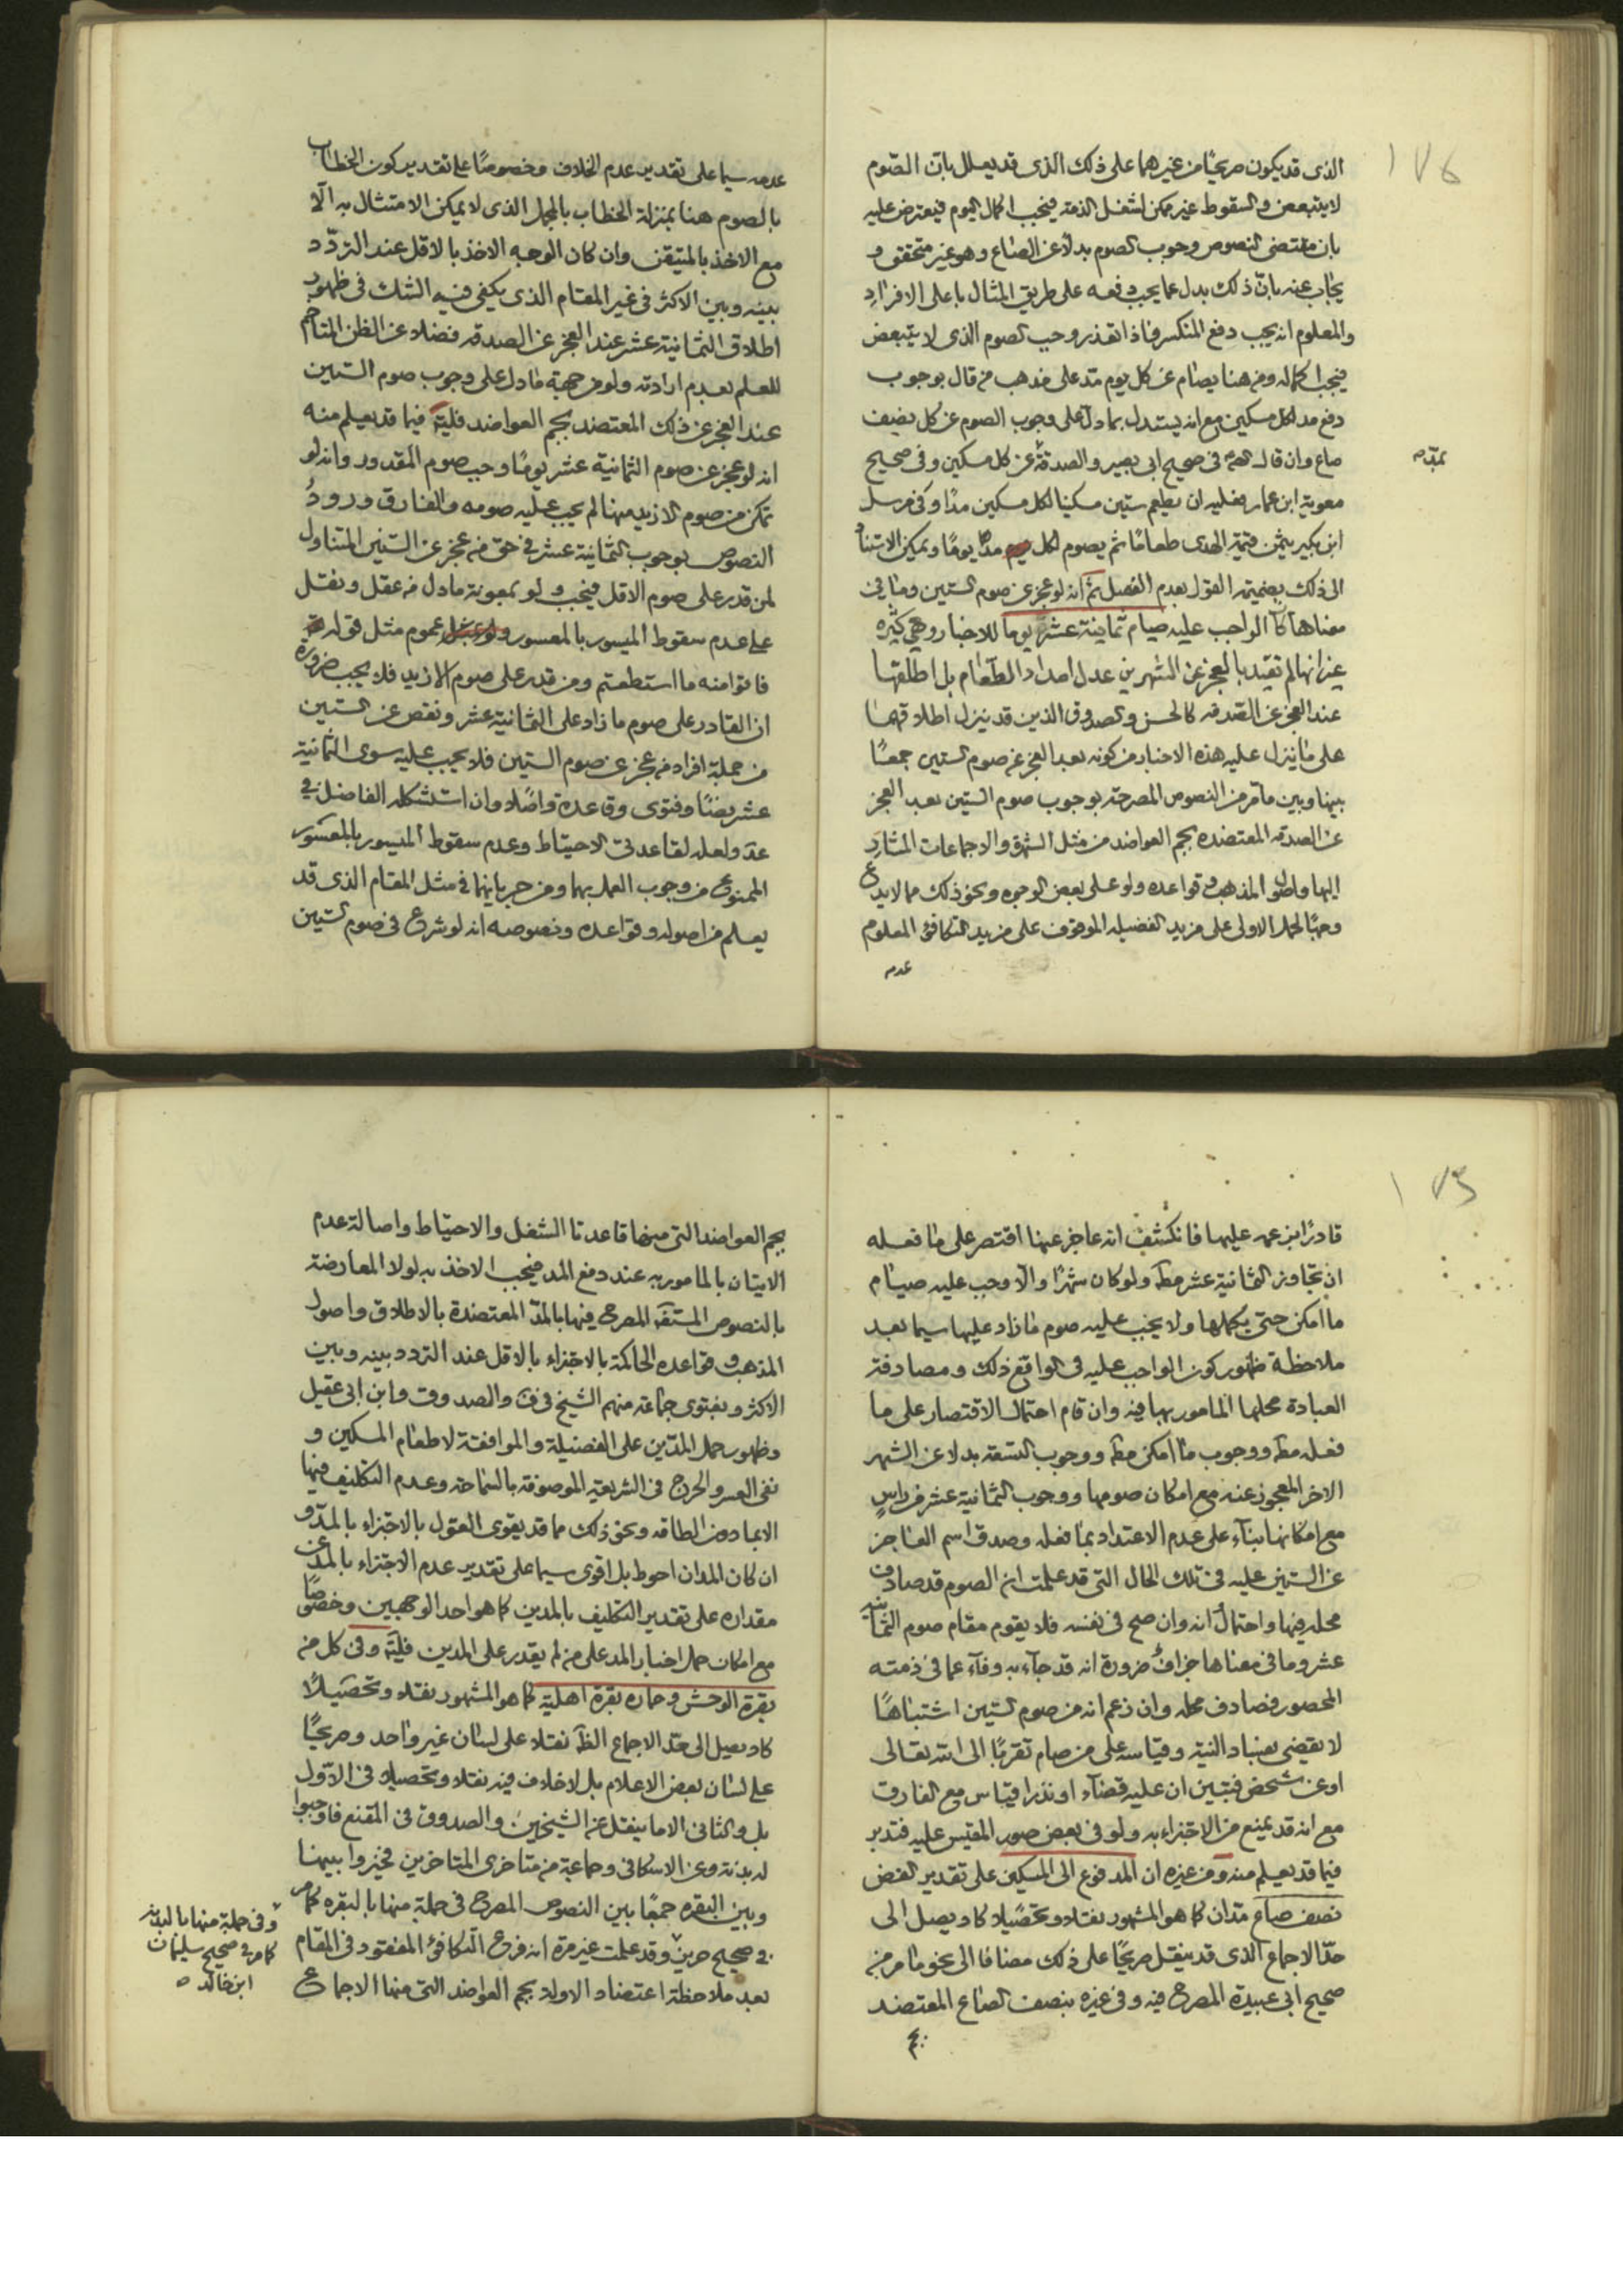 ١٧٤
الذى قد يكون صريحًا من غيرهما على ذلك الذى قد يعلل بان الصوم
لا يتبعض والسقوط غير ممكن لشغل الذمة فيجب اكمال اليوم فيعترض عليه
بان مقتضى النصوص وجوب الصوم بدلا عن الصاع وهو غير متحقق و
يجاب عنه بان ذلك بدل عما يجب دفعه على طريق المثال باعلى الافراد
والمعلوم انه يجب دفع المنكسر فاذا تعذر وجب الصوم الذى لا يتبعض
فيجب اكماله ومن هنا يصام عن كل يوم مد على مذهب من قال بوجوب
دفع مد لكل مسكين مع انه يستدل بما دل على وجوب الصوم عن كل نصيف
صاع وان قال فى صحيح ابى بصير والصدقة عن كل مسكين وفى صحيح
معوية ابن عمار فعليه ان يطعم ستين مسكينا لكل مسكين مدًا وفى مرسل
ابن بكير يثمن قيمة الهدى طعامًا ثم يصوم لكل مد يومًا ويمكن الاستناد
الى ذلك بضميمة القول بعدم الفصل ثم انه لو عجز عن صوم الستين وما فى
معناها كان الواجب عليه صيام ثمانية عشر يوما للاخبار وهى كثيرة
غير انها لم تقيد بالعجز عن الشهرين عدل امداد الطعام بل اطلقتها
عند العجز عن الصدقه كالحسن والصدوق الذين قد ينزل اطلاقهما
على ما ينزل عليه هذه الاخبار من كونه بعد العجز عن صوم الستين جمعًا
بينها وبين ما مر من النصوص المصرحة بوجوب صوم الستين بعد العجز
عن الصدقه المعتضده بجم العواضد من مثل الشهرة والاجماعات المشار
اليها واصول المذهب وقواعده ولو على بعض الوجوه ونحو ذلك مما لا يدع
وجهًا لحمل الاولى على مزيد الفضيله الموقوف على مزيد التكافؤ المعلوم
عدمه
عدمه سيما على تقدير عدم الخلاف وخصوصًا على تقدير كون الخطاب
بالصوم هنا بمنزلة الخطاب بالمجمل الذى لا يمكن الامتثال به الّا
مع الاخذ بالمتيقن وان كان الوجه الاخذ بالاقل عند التردّد
بينه وبين الاكثر فى غير المقام الذى يكفى فيه الشك فى ظهور
اطلاق الثمانية عشر عند العجز عن الصدقه فضلا عن الظن المتاخم
للعلم بعدم ارادته ولو من جهة ما دل على وجوب صوم الستين
عند العجز عن ذلك المعتضد بجم العواضد فليت فيما قد يعلم منه
انه لو عجز عن صوم الثمانية عشر يومًا وجب صوم المقدور وانه لو
تمكن من صوم الازيد منها لم يجب عليه صومه والفارق ورود
النصوص بوجوب الثمانية عشر فى حق من عجز عن الستين المتناول
لمن قدر على صوم الاقل فيجب ولو بمعونة ما دل من عقل ونقل
على عدم سقوط الميسور بالمعسور عموم مثل قوله
فاتوا منه ما استطعتم ومن قدر على صوم الازيد فلا يجب ضرورة
ان القادر على صوم ما زاد على الثمانية عشر ونقص عن الستين
من جملة افراد من عجز عن صوم الستين فلا يجب عليه سوى الثمانية
عشر نصًا وفتوى وقاعدة واصلا وان استشكله الفاضل فى
عد ولعله لقاعدتى الاحتياط وعدم سقوط الميسور بالمعسور
الممنوع من وجوب العمل بهما ومن جريانهما فى مثل المقام الذى قد
يعلم من اصوله وقواعده ونصوصه انه لو شرع فى صوم الستين
١٧٥
قادرًا بزعمه عليها فانكشف انه عاجز عنها اقتصر على ما فعله
ان تجاوز الثمانية عشر مط ولو كان شهرًا والّا وجب عليه صيام
ما امكن حتى يكملها ولا يجب عليه صوم ما زاد عليها سيما بعد
ملاحظة ظهور كون الواجب عليه فى الواقع ذلك ومصادفة
العبادة محلها المامور بها فيه وان قام احتمال الاقتصار على ما
فعله مط ووجوب ما امكن مط ووجوب التسعة بدلا عن الشهر
الاخر المعجوز عنه مع امكان صومها ووجوب الثمانية عشر من راسٍ
مع امكانها بناء على عدم الاعتداد بما فعله وصدق اسم العاجز
عن الستين عليه فى تلك الحال التى قد علمت ان الصوم قد صادف
محله فيها واحتمال انه وان صح فى نفسه فلا يقوم مقام صوم الثمانية
عشر وما فى معناها جزاف ضرورة انه قد جاء به وفاء عما فى ذمته
المحصور فصادف محله وان زعم انه من صوم الستين اشتباهًا
لا يقضى بفساد النية وقياسه على من صام تقربًا الى الله تعالى
او عن شخص فتبين ان عليه قضاء او نذرا قياس مع الفارق
مع انه قد يمنع من الاجتزاء به ولو فى بعض صور المقيس عليه فتدبر
فيما قد يعلم منه ومن غيره ان المدفوع الى المسكين على تقدير الفض
نصف صاع مدان كما هو المشهور نقلا وتحصيلا كاد يصل الى
حدّ الاجماع الذى قد ينقل صريحًا على ذلك مضافا الى نحو ما مر من
صحيح ابى عبيدة المصرح فيه وفى غيره بنصف الصاع المعتضد
بجم
بجم العواضد التى منها قاعدتا الشغل والاحتياط واصالة عدم
الاتيان بالمامور به عند دفع المد فيجب الاخذ به لولا المعارضة
بالنصوص المستفه المصرح فيها بالمدّ المعتضدة بالاطلاق واصول
المذهب وقواعده الحاكمة بالاجتزاء بالاقل عند التردد بينه وبين
الاكثر وبفتوى جماعة منهم الشيخ فى ف والصدوق وابن ابى عقيل
وظهور حمل المدّين على الفضيلة والموافقة لاطعام المسكين و
نفى العسر والحرج فى الشريعة الموصوفة بالسماحة وعدم التكليف فيها
الا بما دون الطاقه ونحو ذلك مما قد يقوى القول بالاجتزاء بالمدّ و
ان كان المدان احوط بل اقوى سيما على تقدير عدم الاجتزاء بالمد عن
مقداره على تقدير التكليف بالمدين كما هو احد الوجهين وخصوصًا
مع امكان حمل اخبار المد على من لم يقدر على المدين فليت وفى كل من
بقرة الوحش وحماره بقرة اهلية كما هو المشهور نقلا وتحصيلًا
كاد يصل الى حدّ الاجماع الظاَ نقلا على لسان غير واحد وصريحًا
على لسان بعض الاعلام بل لا خلاف فيه نقلا وتحصيلا فى الاوّل
بل والثانى الا ما ينقل عن الشيخين والصدوق فى المقنع فاوجبوا
له بدنة وعن الاسكافى وجماعة من متاخرى المتاخرين فخيروا بينها
وبين البقره جمعًا بين النصوص المصرح فى جملة منها بالبقره كما مر
فى صحيح حريز وقد علمت غير مرة انه فرع التكافؤ المفقود فى المقام
بعد ملاحظة اعتضاد الاولة بجم العواضد التى منها الاجماع
وفى جملة منها بالبدنة
كما مر فى صحيح سليمان
ابن خالد